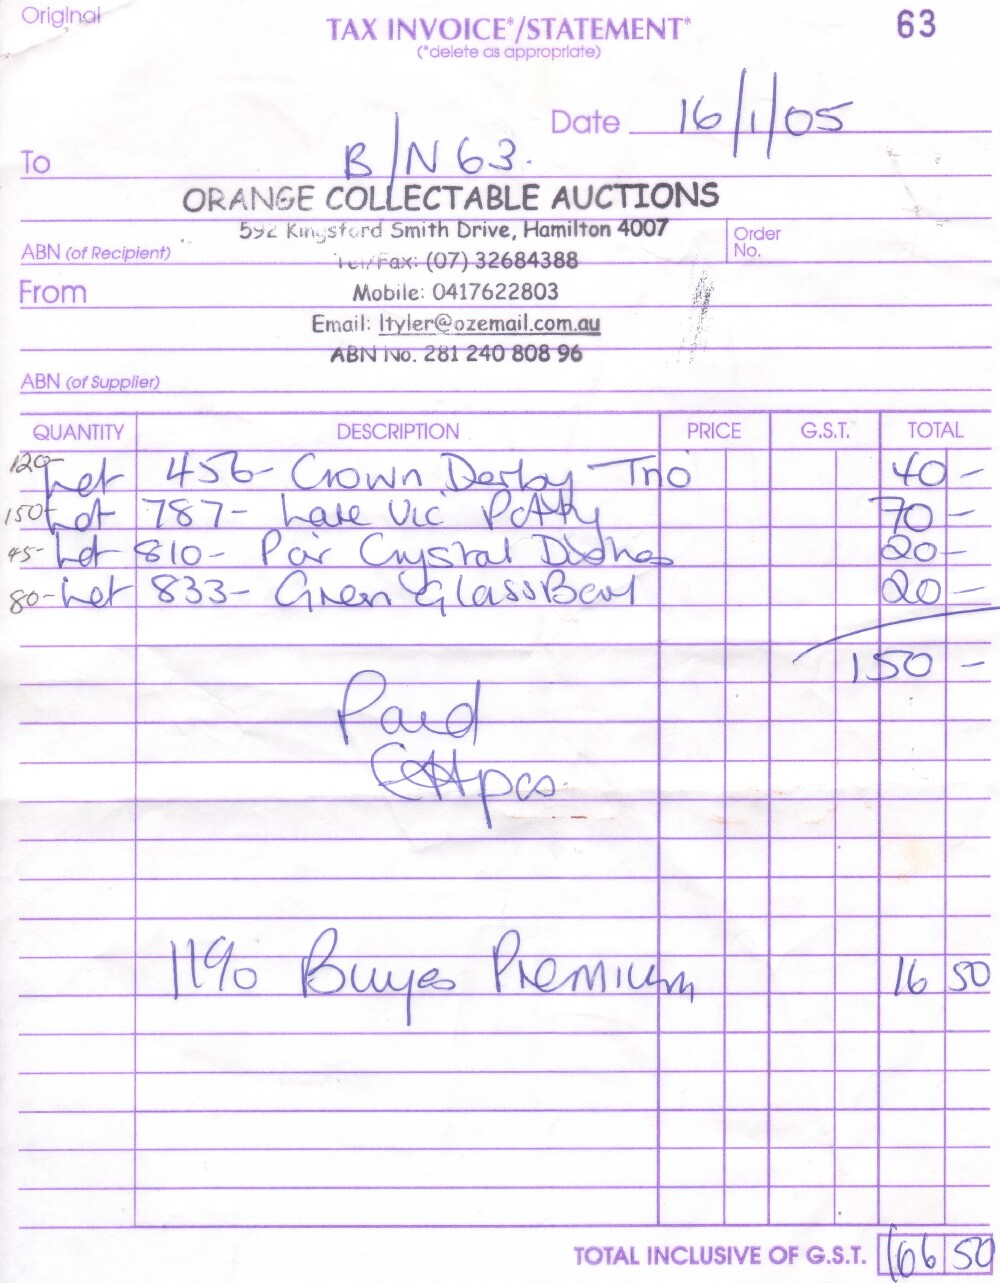 Original
TAX INVOICE*/STATEMENT*
63
(*delete as appropriate)
Date 16/1/05
To B/N 63.
ORANGE COLLECTABLE AUCTIONS
592 Kingsford Smith Drive, Hamilton 4007
ABN (of Recipient)
Order
No.
Tel/Fax: (07) 32684388
From
Mobile: 0417622803
Email: ltyler@ozemail.com.au
ABN No. 281 240 808 96
ABN (of Supplier)
QUANTITY DESCRIPTION PRICE G.S.T. TOTAL
120- Lot 456- Crown Derby Trio 40-
150- Lot 787- Late Vic Potty 70-
45- Lot 810- Pair Crystal Dishes 20-
80- Lot 833- Green Glass Bowl 20-
150-
Paid
11% Buyes Premium 16 50
TOTAL INCLUSIVE OF G.S.T. 166 50